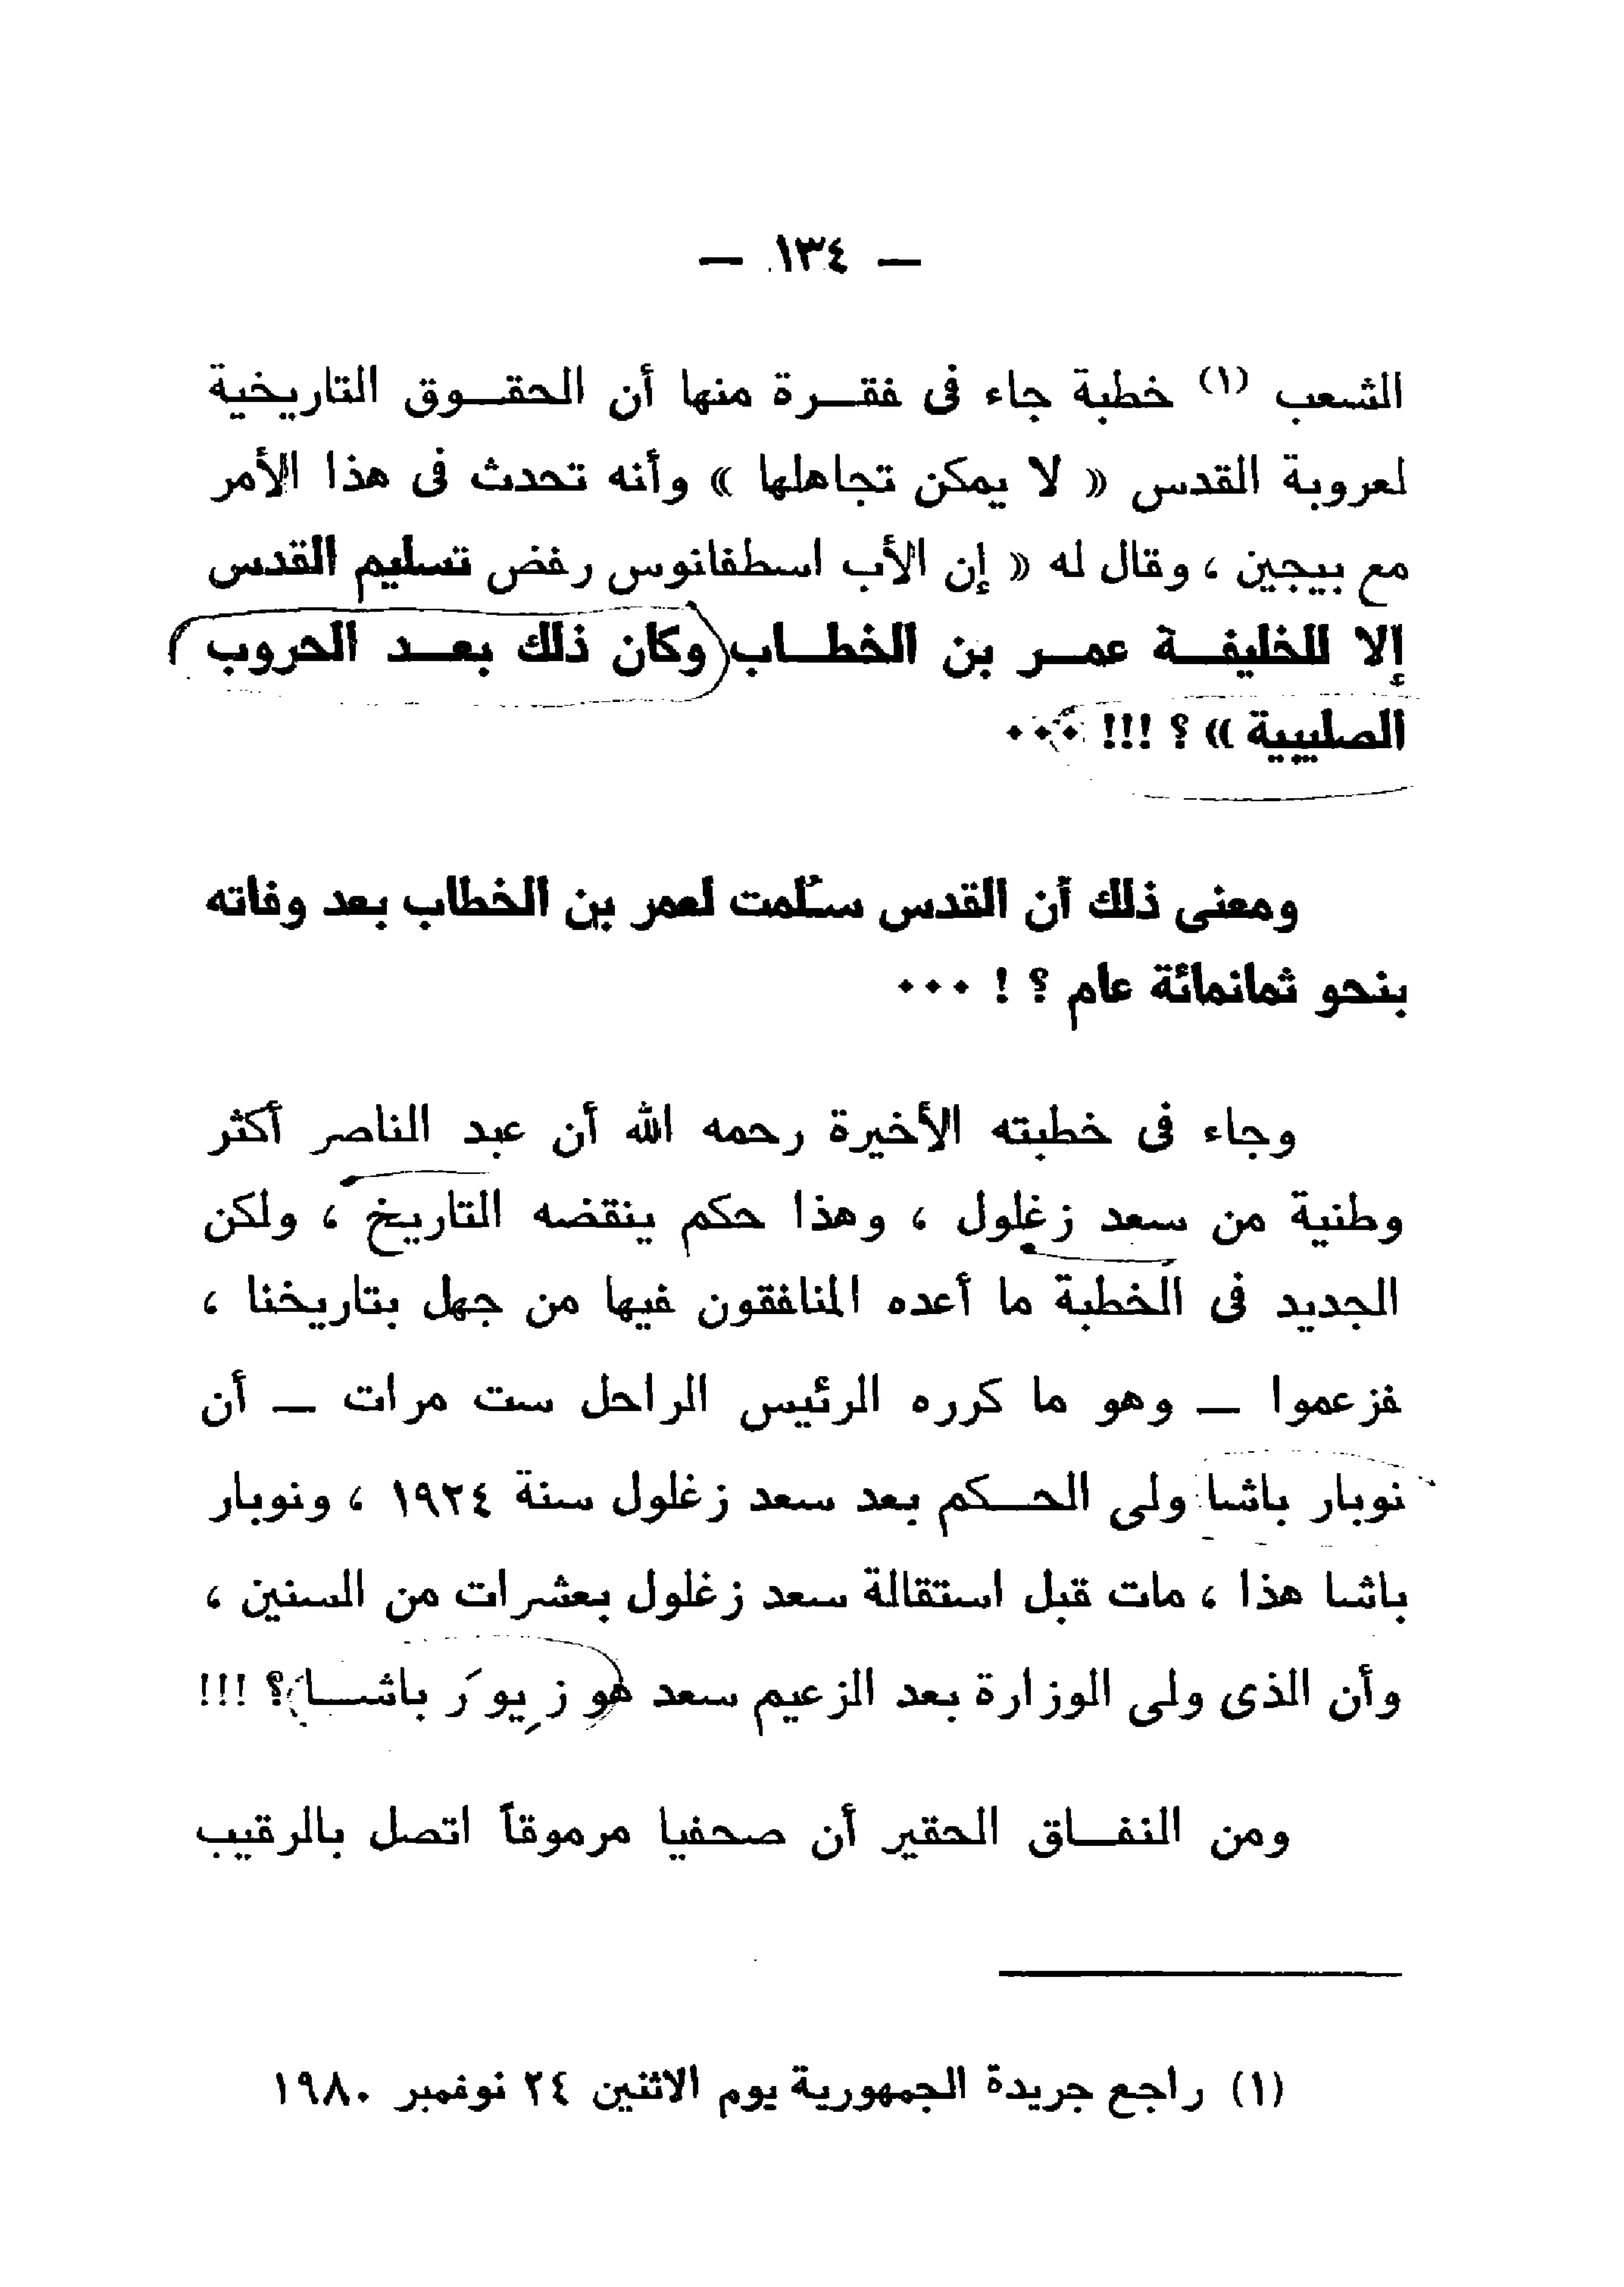 — ١٣٤ —
الشعب (١) خطبة جاء فى فقـــرة منها أن الحقـــوق التاريخية
لعروبة القدس « لا يمكن تجاهلها » وأنه تحدث فى هذا الأمر
مع بيجين ، وقال له « إن الأب اسطفانوس رفض تسليم القدس
إلا للخليفـــة عمـــر بن الخطـــاب وكان ذلك بعـــد الحروب
الصليبية » ؟ !!! ٠٠٠
ومعنى ذلك أن القدس سُلمت لعمر بن الخطاب بعد وفاته
بنحو ثمانمائة عام ؟ ! ٠٠٠
وجاء فى خطبته الأخيرة رحمه الله أن عبد الناصر أكثر
وطنية من سعد زغلول ، وهذا حكم ينقضه التاريخ ، ولكن
الجديد فى الخطبة ما أعده المنافقون فيها من جهل بتاريخنا ،
فزعموا — وهو ما كرره الرئيس الراحل ست مرات — أن
نوبار باشا ولى الحـــكم بعد سعد زغلول سنة ١٩٢٤ ، ونوبار
باشا هذا ، مات قبل استقالة سعد زغلول بعشرات من السنين ،
وأن الذى ولى الوزارة بعد الزعيم سعد هو زِيوَر باشـــا ؟ !!!
ومن النفـــاق الحقير أن صحفيا مرموقاً اتصل بالرقيب
(١) راجع جريدة الجمهورية يوم الاثنين ٢٤ نوفمبر ١٩٨٠